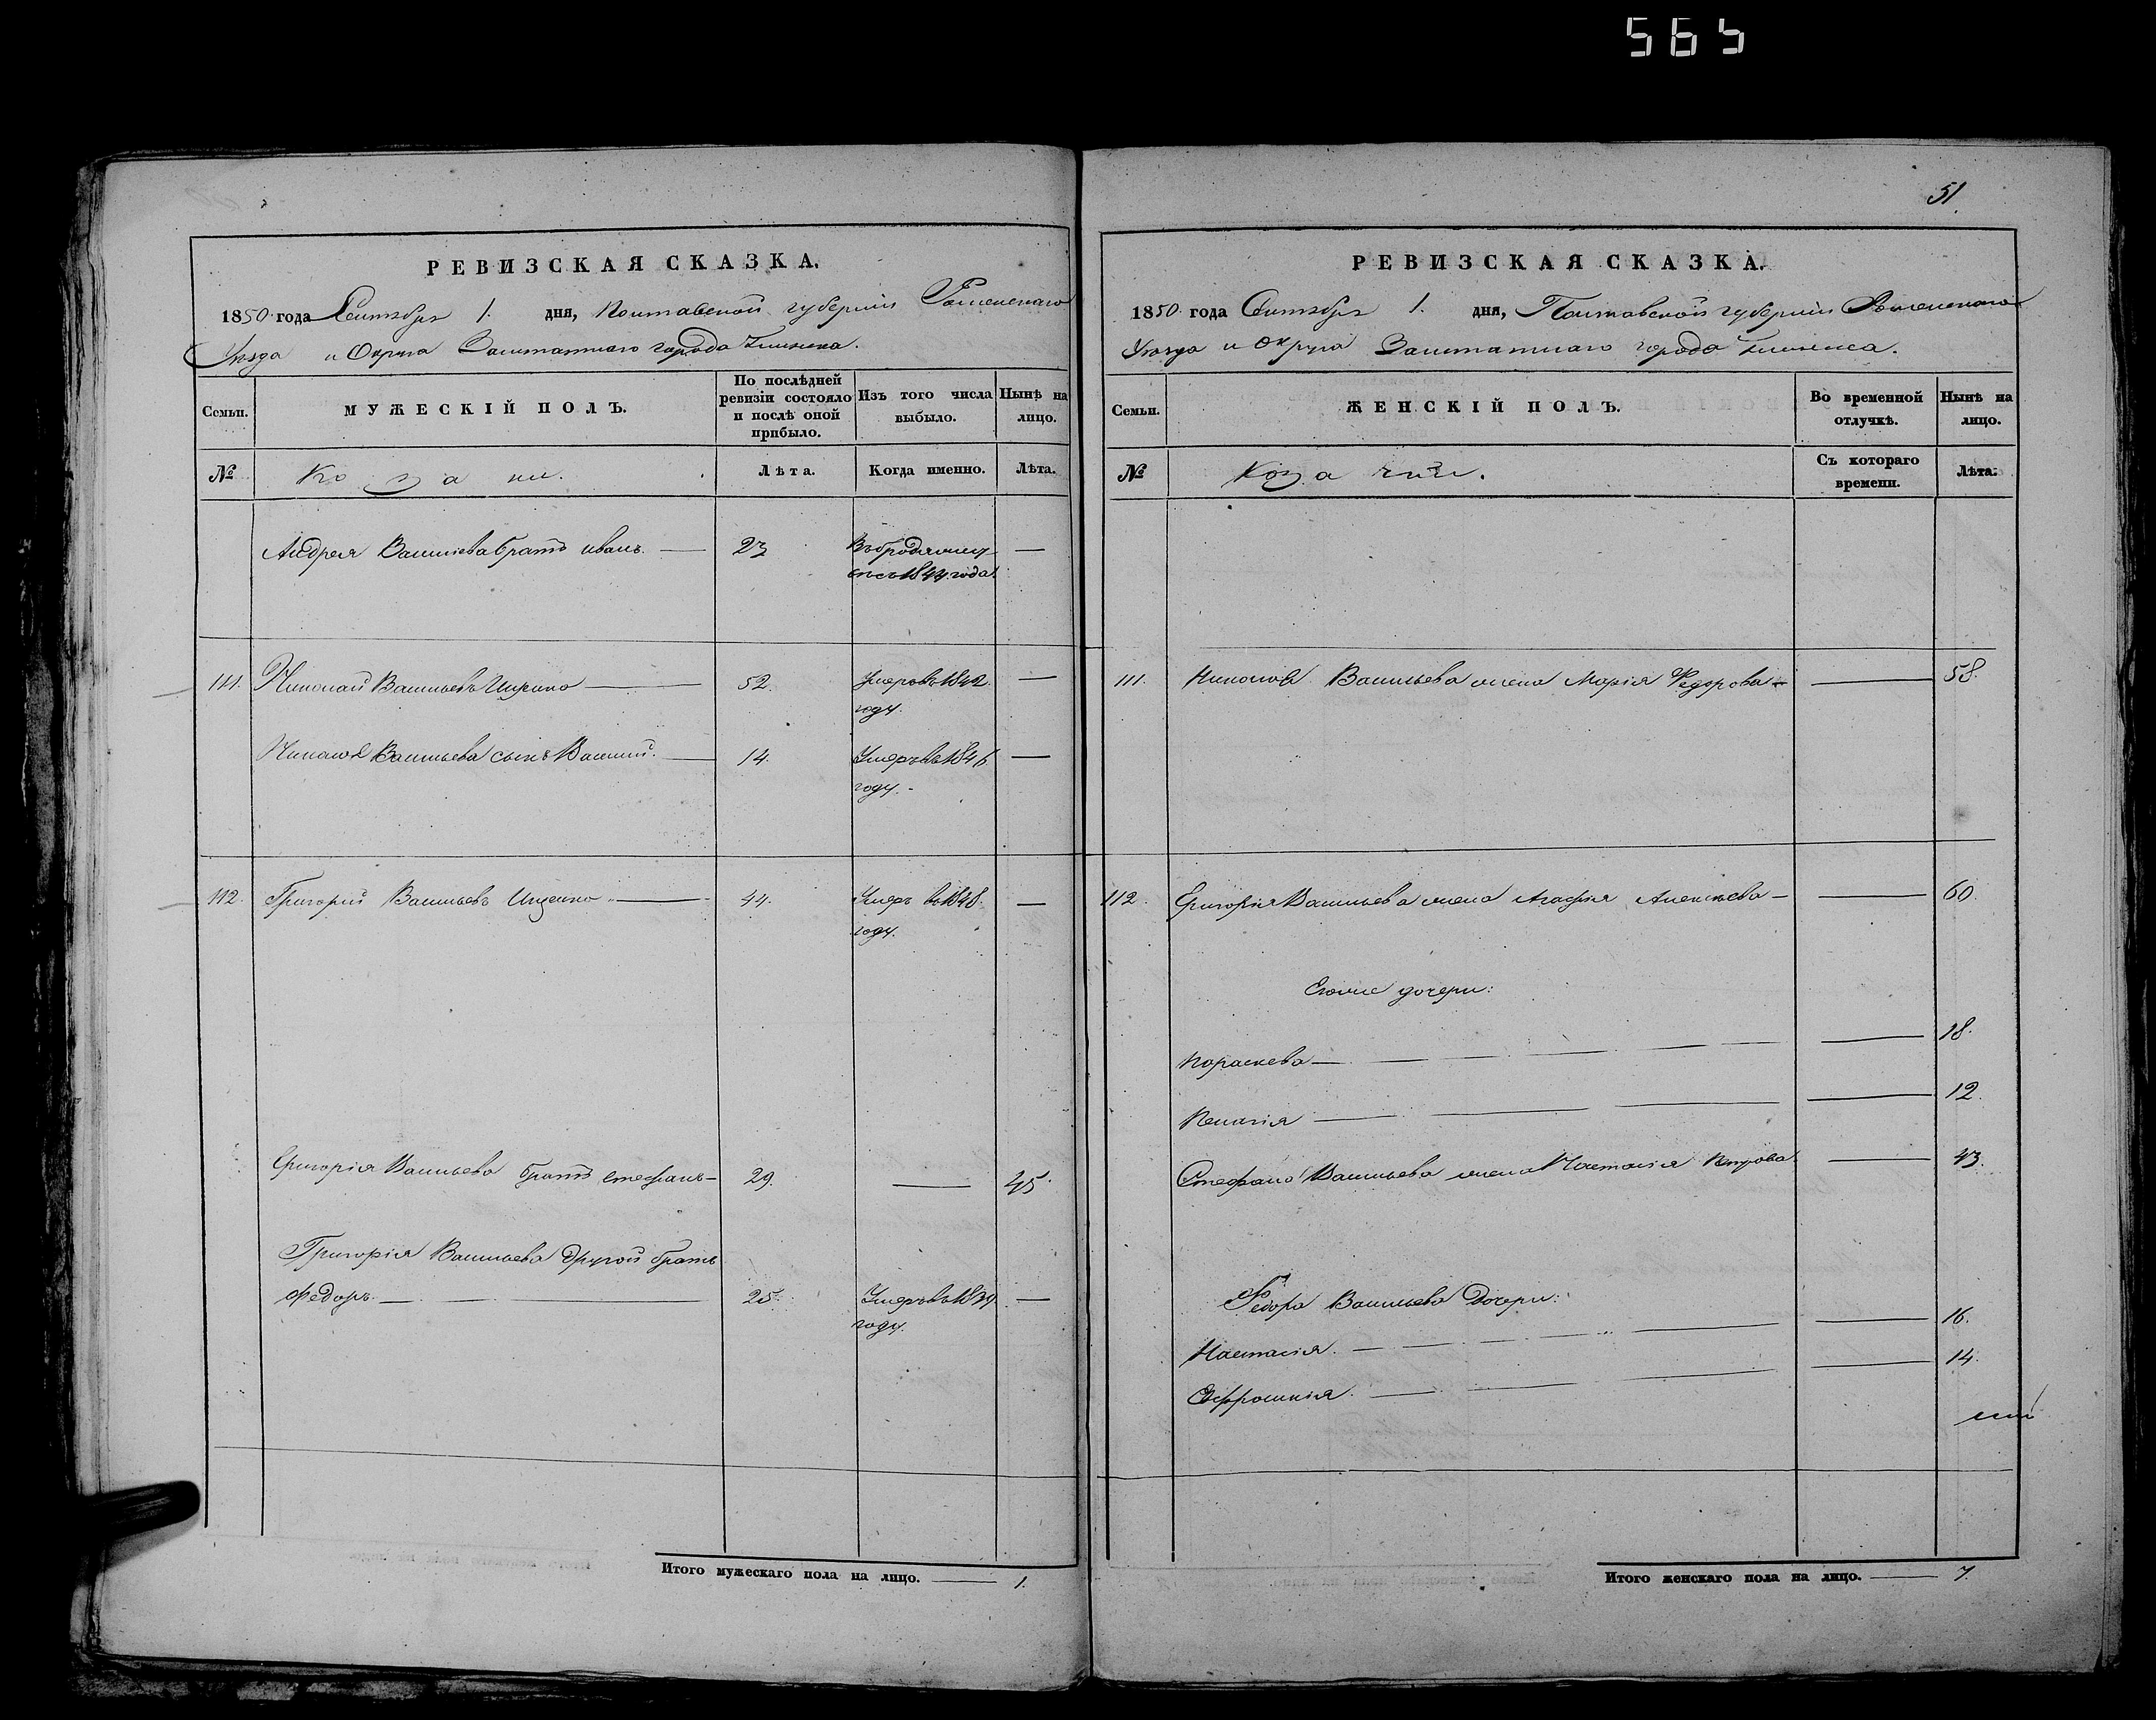 565
51
РЕВИЗСКАЯ СКАЗКА.
1850 года Сентября 1. дня, Полтавской губернiи Роменского
Уѣзда и Округа Заштатнаго города Глинска.
Семьи.
МУЖЕСКІЙ ПОЛЪ.
По послѣдней ревизіи состояло и послѣ оной прибыло.
Изъ того числа выбыло.
Нынѣ на лицо.
№
Козаки.
Лѣта.
Когда именно.
Лѣта.
Андрея Василiева братъ иванъ. — 23 —
съ 1844 года.
111. Николай Васильевъ — 52. Умеръ въ 1842. —
году.
Николая Васильева сынъ Василий. — 14. Умеръ въ 1846 —
году.
112. Григорий Васильевъ Ищенко — 44. Умеръ въ 1848. —
году.
Григорiя Васильева братъ стефанъ — 29. — 45.
Григорiя Васильева другой братъ
Федоръ. — 25. Умеръ въ 1839 —
году.
Итого мужескаго пола на лицо. — 1.
РЕВИЗСКАЯ СКАЗКА.
1850 года Сентября 1. дня, Полтавской губернiи Роменского
Уѣзда и округа Заштатнаго города Глинска.
Семьи.
ЖЕНСКІЙ ПОЛЪ.
Во временной отлучкѣ.
Нынѣ на лицо.
№
Козачки.
Съ котораго времени.
Лѣта.
111. Николая Васильева жена Марiя Федорова — 58.
112. Григорiя Васильева жена Агафiя Алексѣева — 60.
Еговые дочери:
Параскева — 18.
Пелагiя — 12.
Стефана Васильева жена Настасiя Петрова. — 43.
Федора Васильева Дочери:
Настасiя. — 16.
Евфросинiя. — 14.
Итого женскаго пола на лицо. — 7.